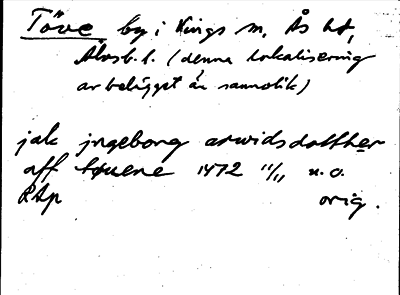 Töve by i Kings sn, Ås hd,
Älvsb. l. (denna lokalisering
av belägget är sannolik)
jak jngeborg arwidsdotther
aff tøuene 1472 11/11 u.o.
RAp orig.